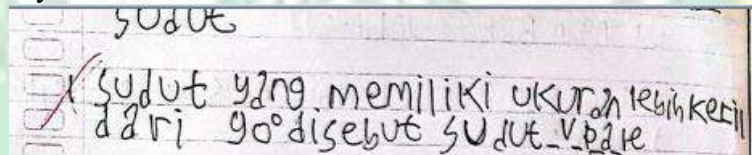 sudut
sudut yang memiliki ukuran lebih kecil
dari 90° disebut sudut